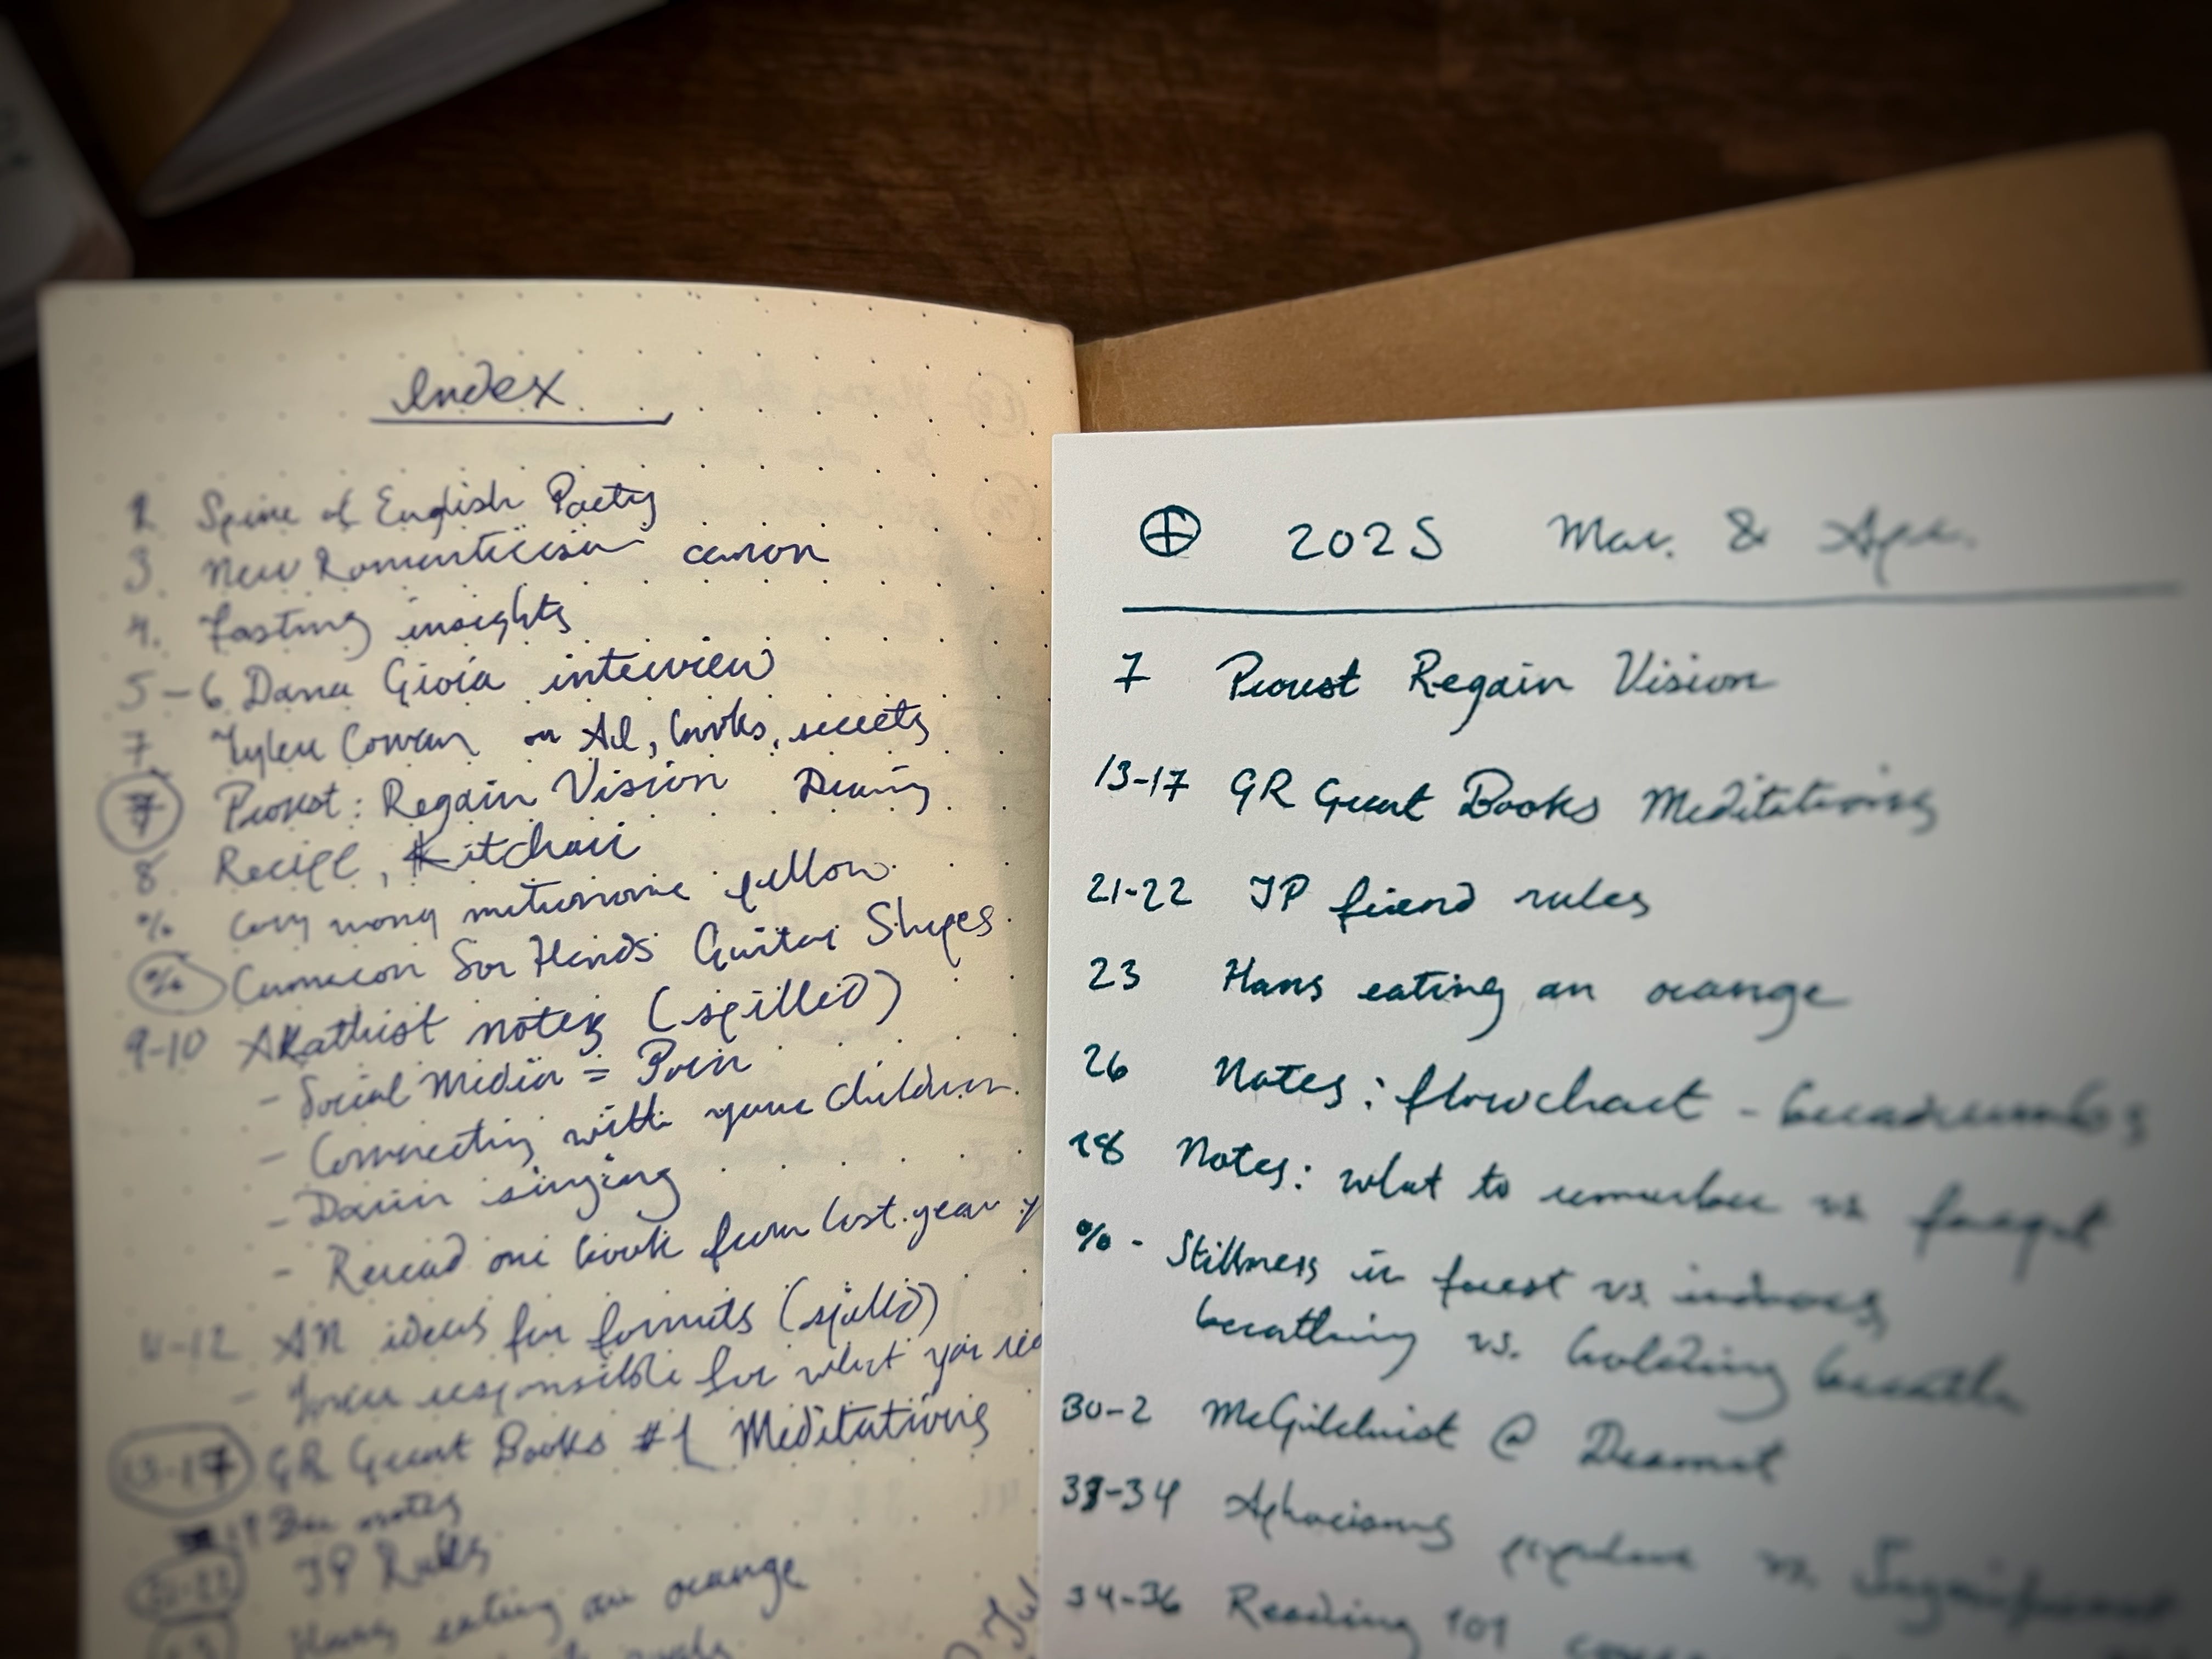 Index
2 Spine of English Poetry
3. New Romanticism canon
4. Fasting insights
5-6 Dana Gioia interview
7. Tyler Cowen on AI, books, secrets
7 Proust: Regain Vision
8 Recipe, Kitchari
% Cory Wong metronome
% Guitar Shapes
9-10 Akathist notes (spilled)
- Social Media = Porn
- Connecting with your children
- singing
- Reread one book from last year
11-12 AN ideas for formats (spilled)
- You're responsible for what you
13-17 GR Great Books #1 Meditations
19 notes
21-22 JP Rules
Hans eating an orange
⊕ 2025 Mar. & Apr.
7 Proust Regain Vision
13-17 GR Great Books Meditations
21-22 JP friend rules
23 Hans eating an orange
26 Notes: flowchart - breadcrumbs
28 Notes: what to remember vs forget
% - Stillness in forest vs. indoors,
breathing vs. holding breath
30-2 McGilchrist @
33-34 Aphorisms vs.
34-36 Reading 101